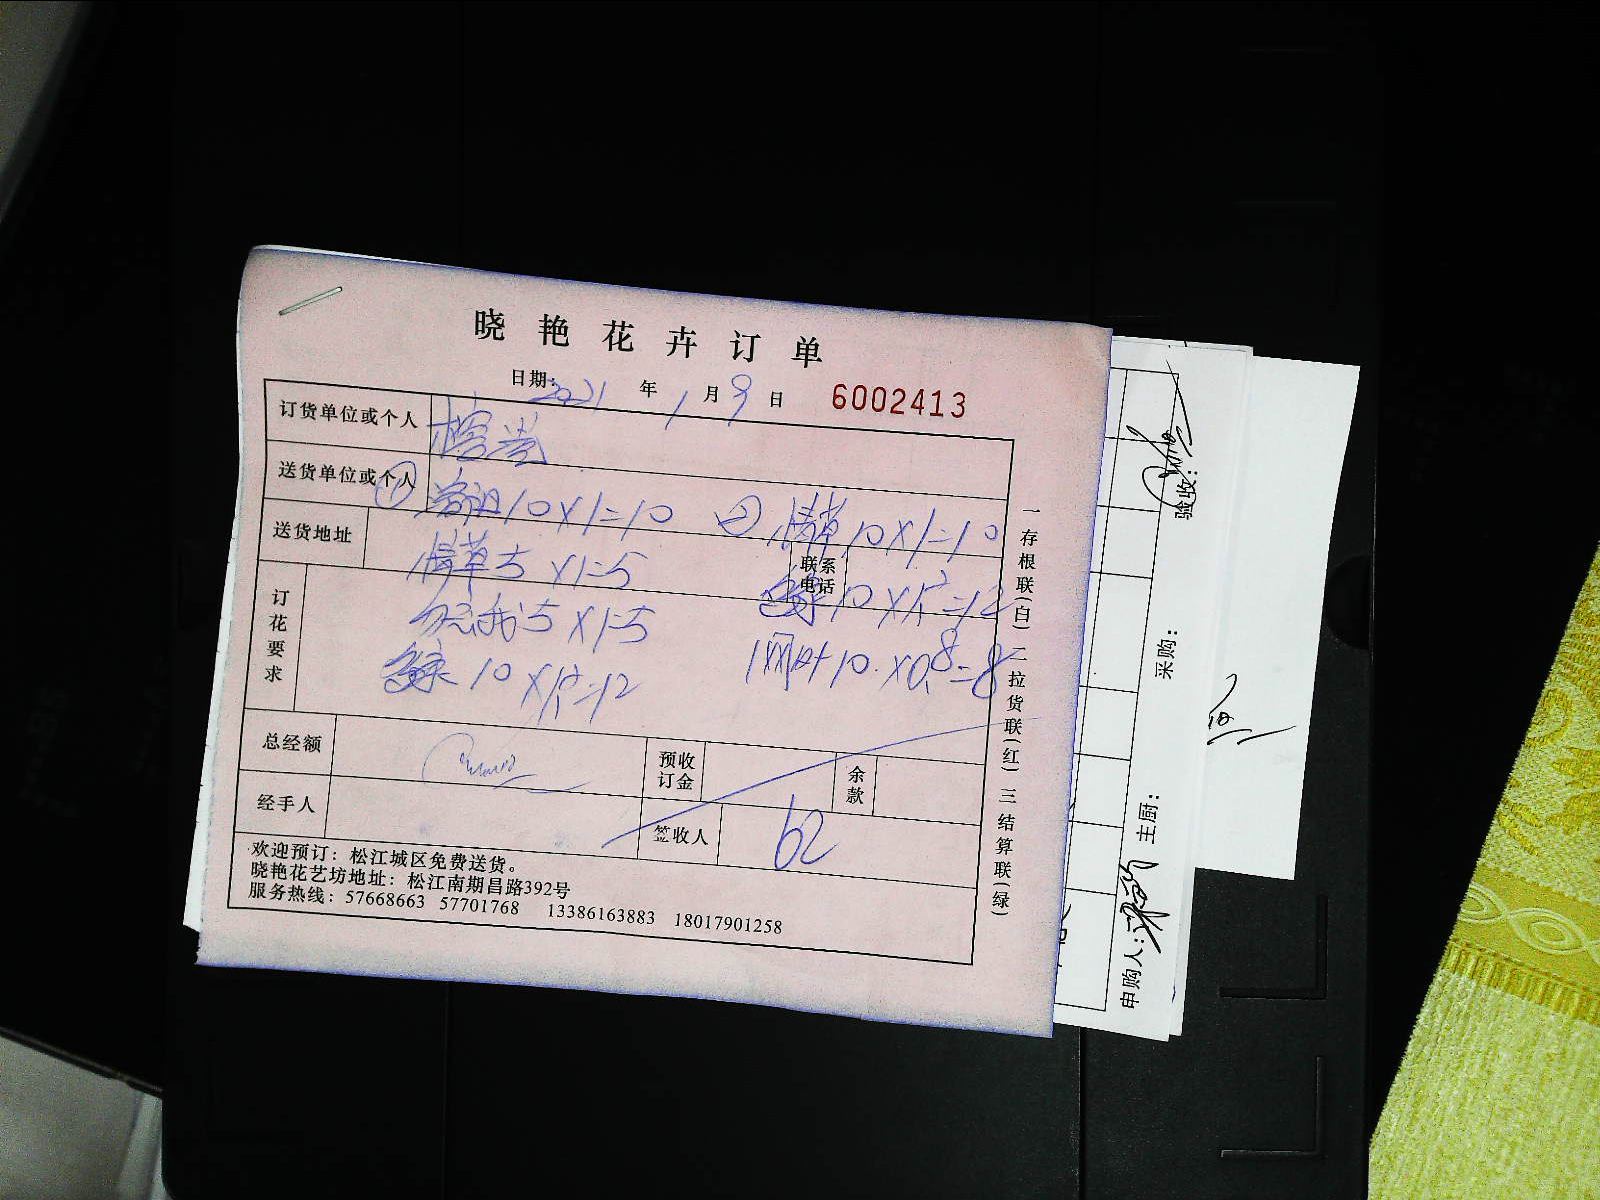 晓艳花卉订单
日期: 2021 年 1 月 9 日 6002413
订货单位或个人
送货单位或个人
① 10×1=10 ② 情草 10×1=10
送货地址 情草 5 ×1=5 联系电话
10×1.2=12
订花要求 勿忘我 5 ×1=5
10 ×1.2=12
网叶 10 ×0.8=8
总经额 预收订金 余款
经手人 签收人 62
欢迎预订：松江城区免费送货。
晓艳花艺坊地址：松江南期昌路392号
服务热线：57668663 57701768 13386163883 18017901258
一存根联(白) 二拉货联(红) 三结算联(绿)
验收：
采购：
主厨：
申购人：